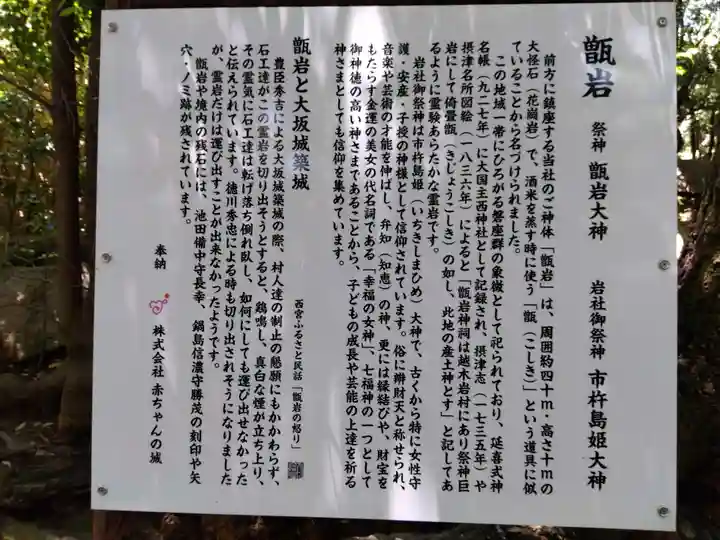 甑岩 祭神 甑岩大神 岩社御祭神 市杵島姫大神
前方に鎮座する当社のご神体「甑岩」は、周囲約四十m・高さ十mの
大怪石（花崗岩）で、酒米を蒸す時に使う「甑（こしき）」という道具に似
ていることから名づけられました。
この地域一帯にひろがる磐座群の象徴として祀られており、延喜式神
名帳（九二七年）に大国主西神社として記録され、摂津志（一七三五年）や
摂津名所図絵（一八三六年）によると「甑岩神祠は越木岩村にあり祭神巨
岩にして倚畳甑（きじょうこしき）の如し、此地の産土神とす」と記してあ
るように霊験あらたかな霊岩です。
岩社御祭神は市杵島姫（いちきしまひめ）大神で、古くから特に女性守
護・安産・子授の神様として信仰されています。俗に辯財天と称せられ、
音楽や芸術の才能を伸ばし、弁知（知恵）の神、更には縁結びや、財宝を
もたらす金運の美女の代名詞である「幸福の女神」、七福神の一つとして
御神徳の高い神さまであることから、子どもの成長や芸能の上達を祈る
神さまとしても信仰を集めています。
甑岩と大坂城築城
西宮ふるさと民話「甑岩の怒り」
豊臣秀吉による大坂城築城の際、村人達の制止の懇願にもかかわらず、
石工達がこの霊岩を切り出そうとすると、鶏鳴し、真白な煙が立ち上り、
その霊気に石工達は転げ落ち倒れ臥し、如何にしても運び出せなかった
と伝えられています。徳川秀忠による時も切り出されそうになりました
が、霊岩だけは運び出すことが出来なかったようです。
甑岩や境内の残石には、池田備中守長幸、鍋島信濃守勝茂の刻印や矢
穴・ノミ跡が残されています。
奉納 株式会社 赤ちゃんの城